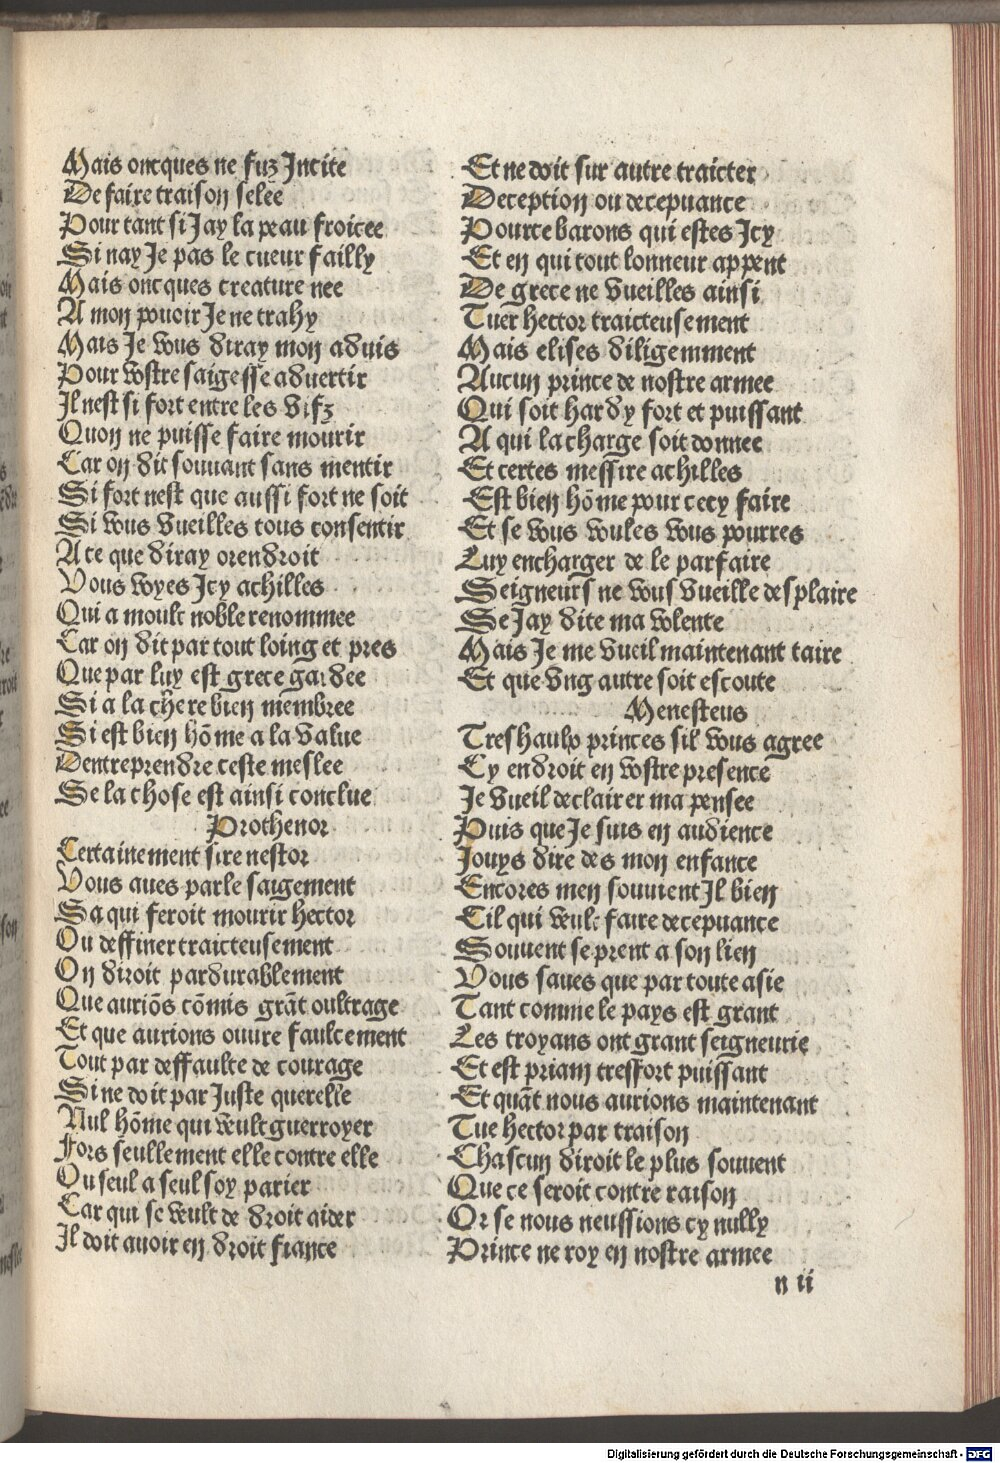 Mais oncques ne fuz Incite
De faire traison selee
Pour tant si Jay la peau froicee
Si nay Je pas le cueur failly
Mais oncques creature nee
A mon pouoir Je ne trahy
Mais Je vous diray mon aduis
Pour vostre saigesse aduertir
Il nest si fort entre les vifz
Quon ne puisse faire mourir
Car on dit souuant sans mentir
Si fort nest que aussi fort ne soit
Si vous vueilles tous consentir
A ce que diray orendroit
Vous voyes Icy achilles
Qui a moult noble renommee
Car on dit par tout loing et pres
Que par luy est grece gardee
Si a la chere bien membree
Si est bien hõme a la value
Dentreprendre ceste meslee
Se la chose est ainsi conclue
Prothenor
Certainement sire nestor
Vous aues parle saigement
Sa qui feroit mourir hector
Ou deffiner traicteusement
On diroit pardurablement
Que auriõs cõmis grãt oultrage
Et que aurions ouure faulcement
Tout par deffaulte de courage
Si ne doit par Juste querelle
Nul hõme qui veult guerroyer
Fors seullement elle contre elle
Ou seul a seul soy parier
Car qui se veult de droit aider
Il doit auoir en droit fiance
Et ne doit sur autre traicter
Deception ou decepuance
Pource barons qui estes Icy
Et en qui tout lonneur appent
De grece ne vueilles ainsi
Tuer hector traicteusement
Mais elises diligemment
Aucun prince de nostre armee
Qui soit hardy fort et puissant
A qui la charge soit donnee
Et certes messire achilles
Est bien hõme pour cecy faire
Et se vous voules vous pourres
Luy encharger de le parfaire
Seigneurs ne vous vueille desplaire
Se Jay dite ma volente
Mais Je me vueil maintenant taire
Et que vng autre soit escoute
Menesteus
Treshaulx princes sil vous agree
Cy endroit en vostre presence
Je vueil declairer ma pensee
Puis que Je suis en audience
Jouys dire des mon enfance
Encores men souuient Il bien
Cil qui veult faire decepuance
Souuent se prent a son lien
Vous saues que par toute asie
Tant comme le pays est grant
Les troyans ont grant seigneurie
Et est priam tresfort puissant
Et quãt nous aurions maintenant
Tue hector par traison
Chascun diroit le plus souuent
Que ce seroit contre raison
Or se nous neussions cy nully
Prince ne roy en nostre armee
n ii
Digitalisierung gefördert durch die Deutsche Forschungsgemeinschaft - DFG